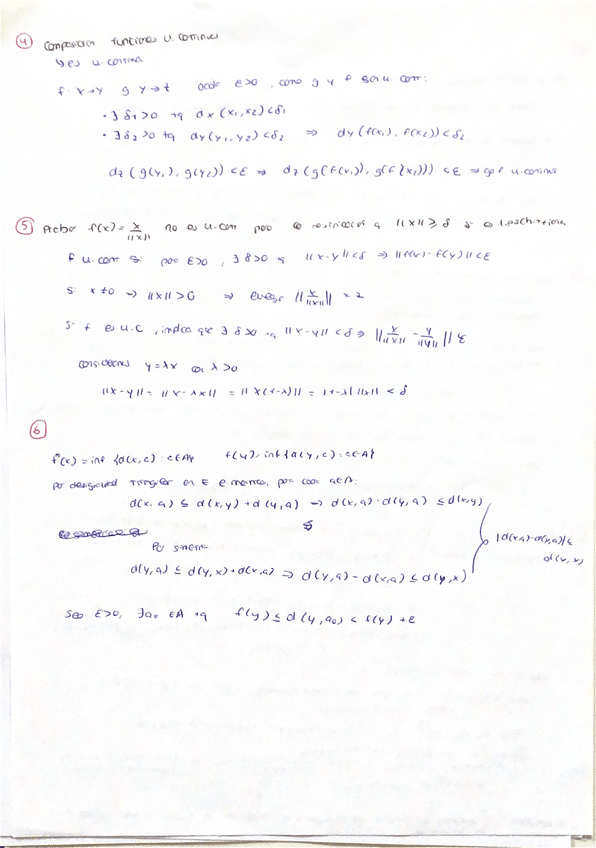 ④ Composición funciones u. continuas
↳ es u. continua
f: X→Y g: Y→Z dado ε>0, como g y f son u. cont:
• ∃ δ₁>0 tq dx(x₁,x₂)<δ₁
• ∃ δ₂>0 tq dy(y₁,y₂)<δ₂ ⇒ dy(f(x₁), f(x₂))<δ₂
dz(g(y₁), g(y₂))<ε ⇒ dz(g(f(x₁)), g(f(x₂)))<ε ⇒ g∘f u. continua
⑤ Probar f(x) = x/||x|| no es u. cont pero la restricción a ||x|| ≥ δ si es lipschitziana
f u. cont si para ε>0, ∃ δ>0 tq ||x-y||<δ ⇒ ||f(x)-f(y)||<ε
Si x≠0 → ||x||>0 ⇒ ||x/||x|| || = 2
Si f es u.C, implica que ∃ δ>0 tq ||x-y||<δ ⇒ ||x/||x|| - y/||y|| || ε
consideremos y=λx con λ>0
||x-y|| = ||x-λx|| = ||x(1-λ)|| = |1-λ| ||x|| < δ
⑥
f(x) = inf {d(x,a) : a∈A} f(y) = inf {d(y,a) : a∈A}
Por desigualdad triangular en E e métrico, para cada a∈A:
d(x,a) ≤ d(x,y) + d(y,a) → d(x,a) - d(y,a) ≤ d(x,y)
|d(x,a)-d(y,a)| ≤
d(x,y)
Por simetria
d(y,a) ≤ d(y,x) + d(x,a) ⇒ d(y,a) - d(x,a) ≤ d(y,x)
Sea ε>0, ∃a₀ ∈A tq f(y) ≤ d(y,a₀) < f(y) + ε